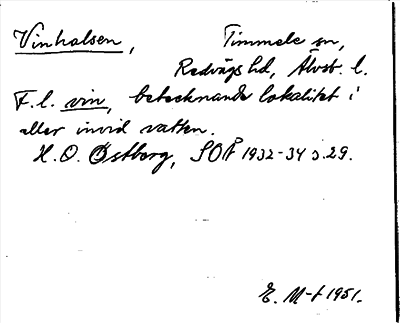 Vinhalsen, Timmele sn,
Redvägs hd, Älvsb. l.
F. l. vin, betecknande lokalitet i
eller invid vatten.
H. O. Östberg, SOÅ 1932-34 s. 29.
E. M-t 1951.